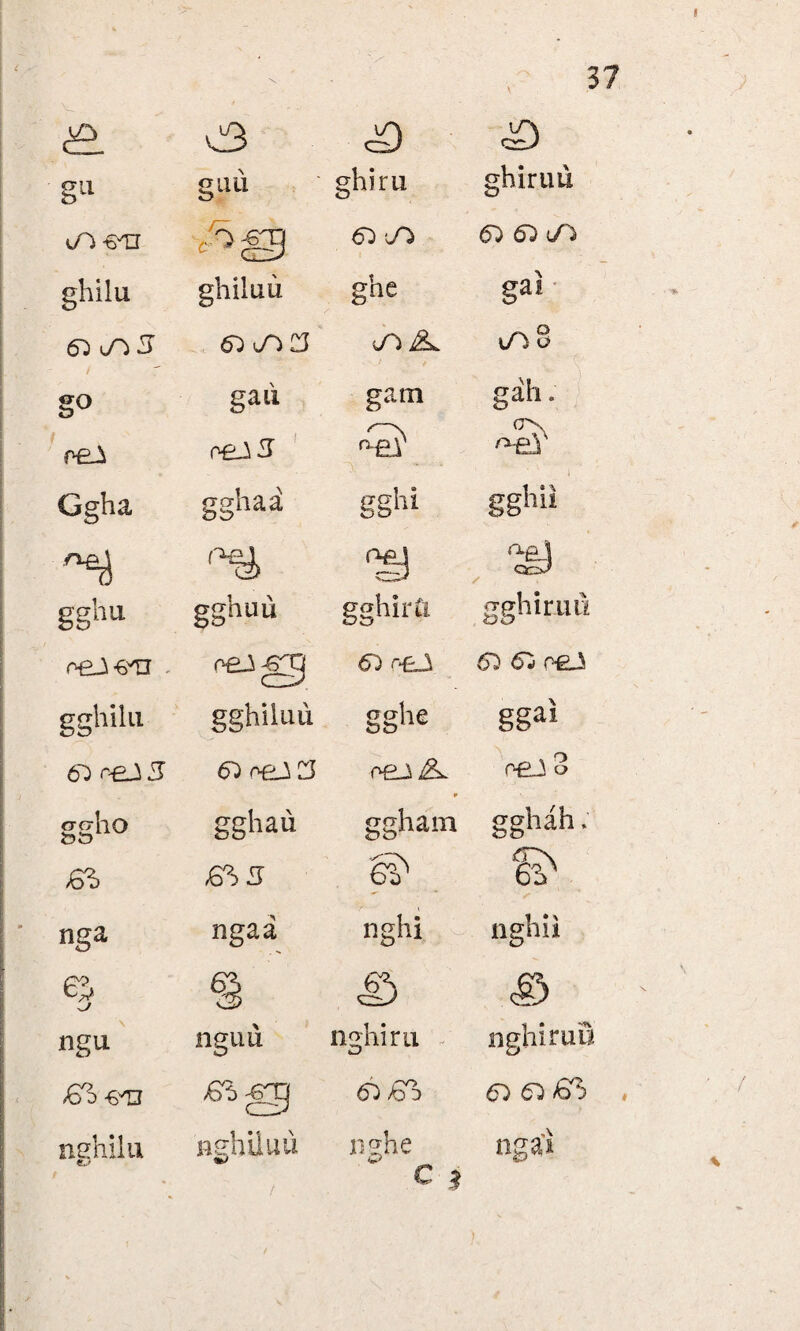 37
ഗു ഗൂ ഗൃ ഗൄ
gu guù ghiru ghiruù
ഗഌ ഗൡ ഗെ ഗൈ
ghilu ghiluù ghe gaì
ഗൊ ഗൌ ഗം ഗഃ
go gaù gam gàh.
ഘ ഘാ ഘി ഘീ
Ggha gghaà gghi gghiì
ഘു ഘൂ ഘൃ ഘൄ
gghu gghuù gghirù gghiruù
ഘഌ ഘൡ ഘെ ഘൈ
gghilu gghiluù gghe ggaì
ഘൊ ഘൌ ഘം ഘഃ
ggho gghaù ggham gghàh.
ങ ങാ ങി ങീ
nga ngaà nghi nghiì
ങു ങൂ ങൃ ങൄ
ngu nguù nghiru nghiruù
ങഌ ങൡ ങെ ങൈ
nghilu nghiluù nghe ngaì
C 3